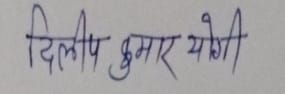 दिलीप कुमार योगी